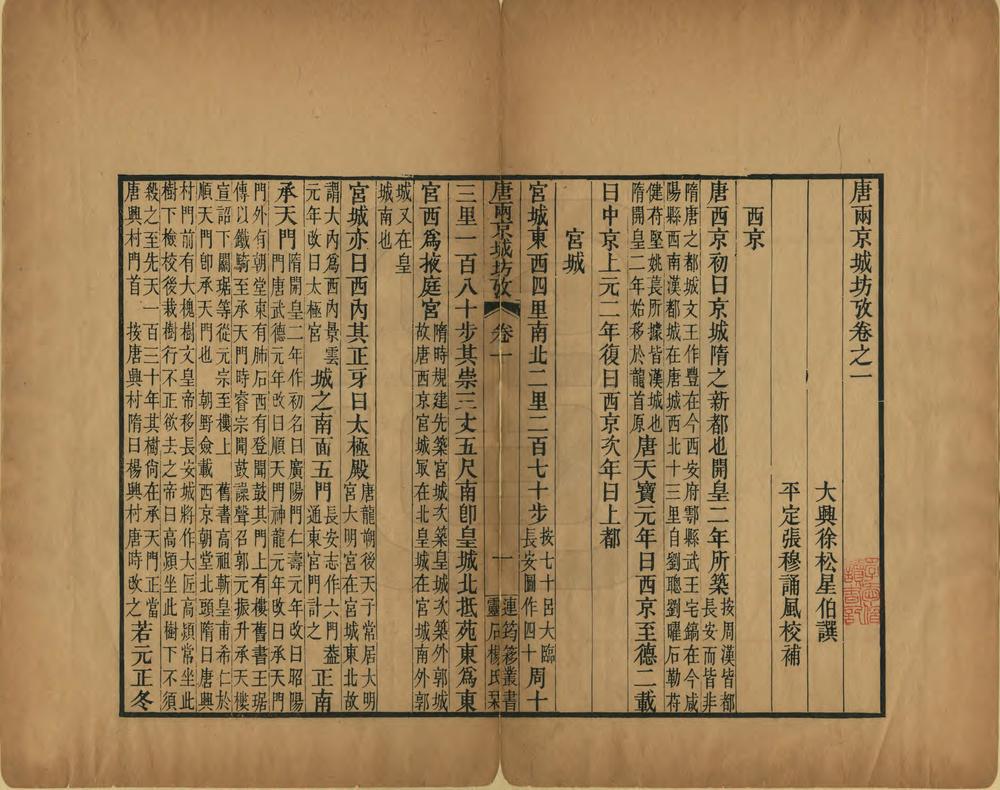 唐兩京城坊攷卷之一
大興徐松星伯譔
平定張穆誦風校補
西京
唐西京初曰京城隋之新都也開皇二年所築
按周漢皆都長安而皆非
隋唐之都城文王作豐在今西安府鄠縣武王宅鎬在今咸
陽縣西南漢都城在唐城西北十三里自劉聰劉曜石勒苻
健苻堅姚萇所據皆漢城也
隋開皇二年始移於龍首原
唐天寶元年曰西京至德二載
曰中京上元二年復曰西京次年曰上都
宮城
宮城東西四里南北二里二百七十步
按七十呂大臨
長安圖作四十
周十
唐兩京城坊攷
卷一
一
連筠簃叢書
靈石楊氏栞
三里一百八十步其崇三丈五尺南卽皇城北抵苑東爲東
宮西爲掖庭宮
隋時規建先築宮城次築皇城次築外郭城
故唐西京宮城冣在北皇城在宮城南外郭
城又在皇
城南也
宮城亦曰西內其正牙曰太極殿
唐龍朔後天子常居大明
宮大明宮在宮城東北故
謂大內爲西內景雲
元年改曰太極宮
城之南面五門
長安志作六門葢
通東宮門計之
正南
承天門
隋開皇二年作初名曰廣陽門仁壽元年改曰昭陽
門唐武德元年改曰順天門神龍元年改曰承天門
門外有朝堂東有肺石西有登聞鼓其門上有樓舊書王琚
傳以鐵騎至承天門時睿宗聞鼓譟聲召郭元振升承天樓
宣詔下關琚等從元宗至樓上 舊書高祖斬皇甫希仁於
順天門卽承天門也 朝野僉載西京朝堂北頭隋曰唐興
村門前有大槐樹文皇帝移長安城將作大匠高熲常坐此
樹下檢校後栽樹行不正欲去之帝曰高熲坐此樹下不須
殺之至先天一百三十年其樹尙在承天門正當
唐興村門首 按唐興村隋曰楊興村唐時改之
若元正冬